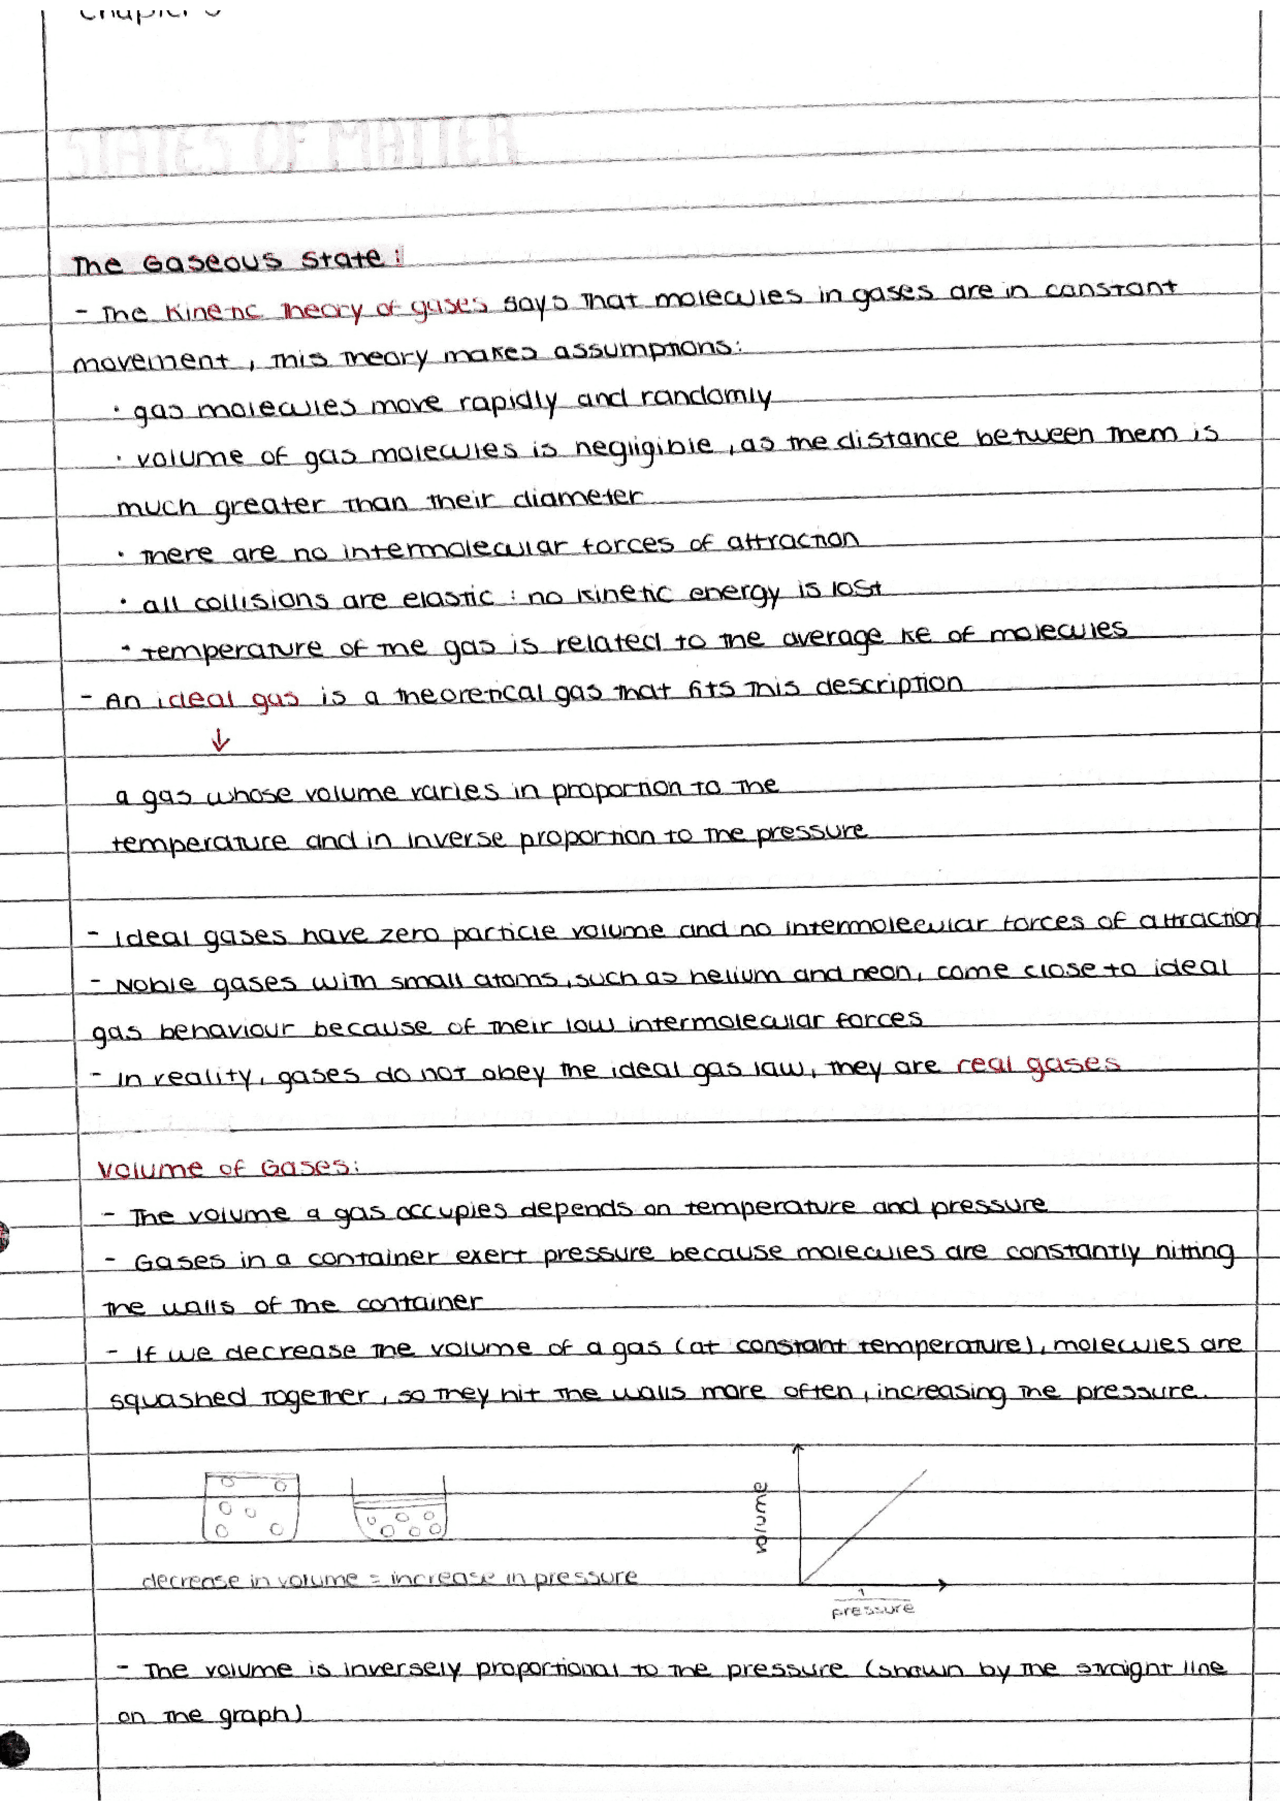 STATES OF MATTER
The Gaseous State:
- The Kinetic Theory of gases says that molecules in gases are in constant
movement, this theory makes assumptions:
· gas molecules move rapidly and randomly
· volume of gas molecules is negligible, as the distance between them is
much greater than their diameter
· there are no intermolecular forces of attraction
· all collisions are elastic : no kinetic energy is lost
· temperature of the gas is related to the average KE of molecules
- An ideal gas is a theoretical gas that fits this description
↓
a gas whose volume varies in proportion to the
temperature and in inverse proportion to the pressure
- Ideal gases have zero particle volume and no intermolecular forces of attraction
- Noble gases with small atoms, such as helium and neon, come close to ideal
gas behaviour because of their low intermolecular forces
- In reality, gases do not obey the ideal gas law, they are real gases
Volume of Gases:
- The volume a gas occupies depends on temperature and pressure
- Gases in a container exert pressure because molecules are constantly hitting
the walls of the container
- If we decrease the volume of a gas (at constant temperature), molecules are
squashed together, so they hit the walls more often, increasing the pressure.
volume
decrease in volume = increase in pressure
1
pressure
- The volume is inversely proportional to the pressure (shown by the straight line
on the graph)